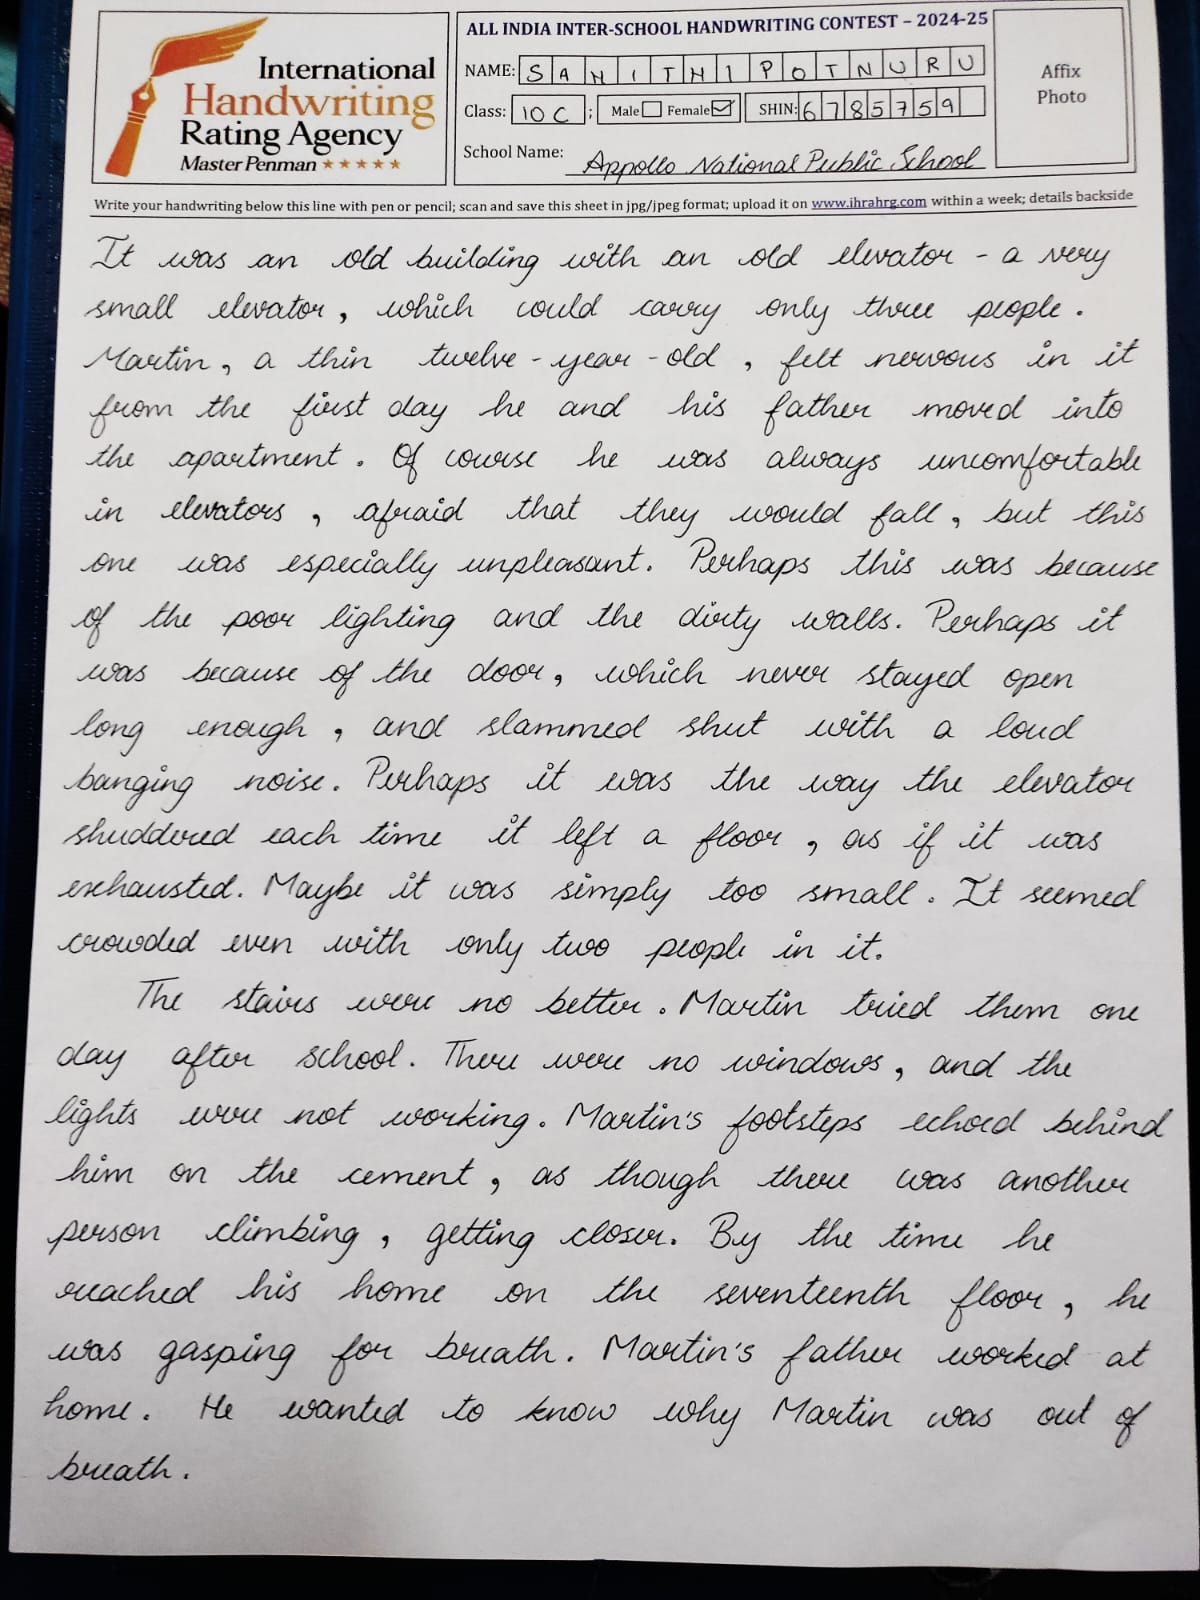 International
Handwriting
Rating Agency
Master Penman ★★★★★
ALL INDIA INTER-SCHOOL HANDWRITING CONTEST – 2024-25
NAME: SANITHI POTNURU
Class: 10 C ; Male Female SHIN: 6785759
School Name: Appollo National Public School
Affix
Photo
Write your handwriting below this line with pen or pencil; scan and save this sheet in jpg/jpeg format; upload it on www.ihrahrg.com within a week; details backside
It was an old building with an old elevator - a very
small elevator, which could carry only three people.
Martin, a thin twelve-year-old, felt nervous in it
from the first day he and his father moved into
the apartment. Of course he was always uncomfortable
in elevators, afraid that they would fall, but this
one was especially unpleasant. Perhaps this was because
of the poor lighting and the dirty walls. Perhaps it
was because of the door, which never stayed open
long enough, and slammed shut with a loud
banging noise. Perhaps it was the way the elevator
shuddered each time it left a floor, as if it was
exhausted. Maybe it was simply too small. It seemed
crowded even with only two people in it.
The stairs were no better. Martin tried them one
day after school. There were no windows, and the
lights were not working. Martin's footsteps echoed behind
him on the cement, as though there was another
person climbing, getting closer. By the time he
reached his home on the seventeenth floor, he
was gasping for breath. Martin's father worked at
home. He wanted to know why Martin was out of
breath.